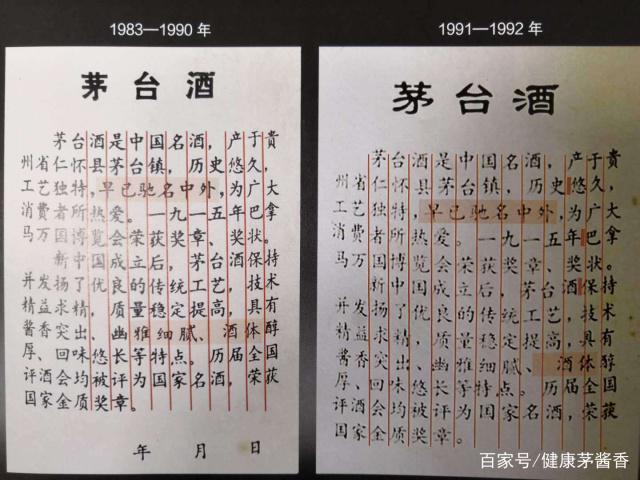 1983—1990 年
茅台酒
茅台酒是中国名酒，产于贵
州省仁怀县茅台镇，历史悠久，
工艺独特，早已驰名中外，为广大
消费者所热爱。一九一五年巴拿
马万国博览会荣获奖章、奖状。
新中国成立后，茅台酒保持
并发扬了优良的传统工艺，技术
精益求精，质量稳定提高，具有
酱香突出、幽雅细腻、酒体醇
厚、回味悠长等特点。历届全国
评酒会均被评为国家名酒，荣获
国家金质奖章。
年 月 日
1991—1992 年
茅台酒
茅台酒是中国名酒，产于贵
州省仁怀县茅台镇，历史悠久，
工艺独特，早已驰名中外，为广大
消费者所热爱。一九一五年巴拿
马万国博览会荣获奖章、奖状。
新中国成立后，茅台酒保持
并发扬了优良的传统工艺，技术
精益求精，质量稳定提高，具有
酱香突出、幽雅细腻、酒体醇
厚、回味悠长等特点。历届全国
评酒会均被评为国家名酒，荣获
国家金质奖章。
百家号/健康茅酱香